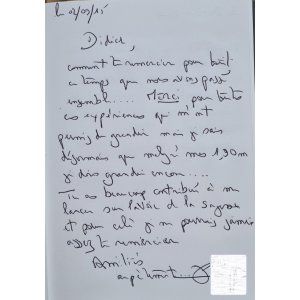 le 02/09/15
Didier,
comment te remercier pour tout
ce temps que nous avons passé
ensemble.... Merci pour toutes
ces expériences qui m'ont
permis de grandir mais je sais
désormais que malgré mes 1,90m
je dois grandir encore....
Tu as beaucoup contribué à me
lancer sur la voie de la sagesse
et pour cela je ne pourrais jamais
assez te remercier
Amitiés